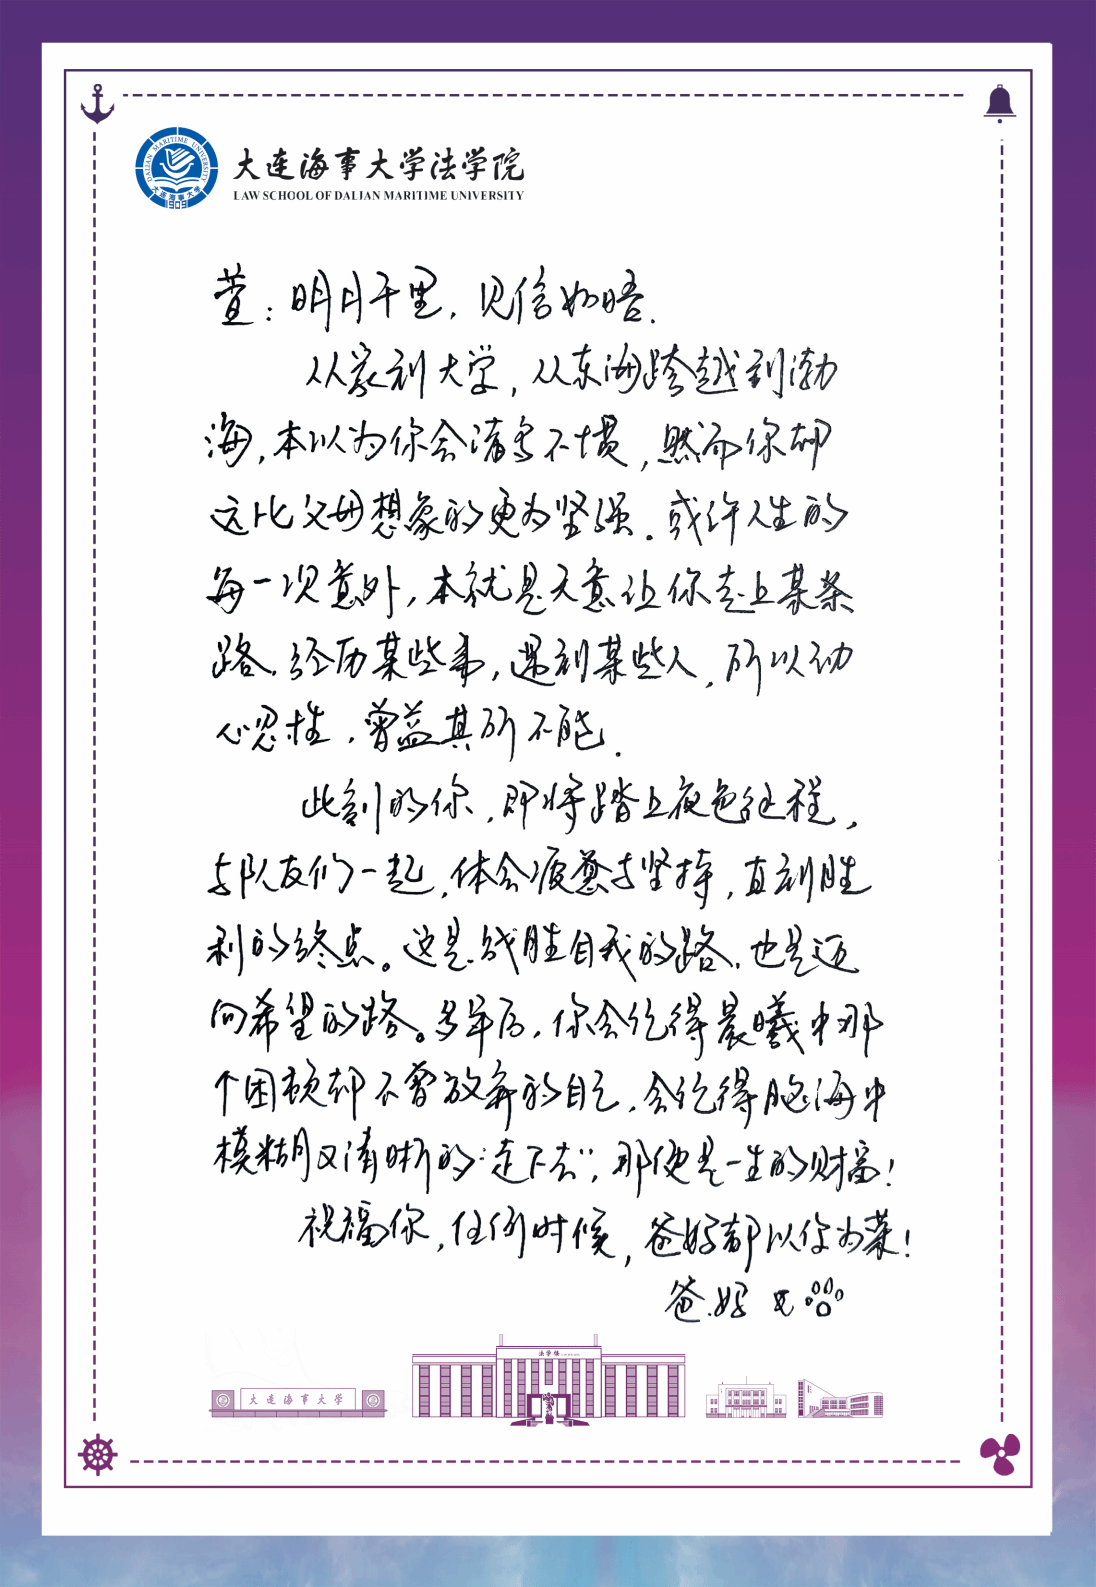 DALIAN MARITIME UNIVERSITY
大连海事大学
1909
大连海事大学法学院
LAW SCHOOL OF DALIAN MARITIME UNIVERSITY
萱：明月千里，见信如晤.
从家到大学，从东海跨越到渤
海,本以为你会诸多不惯,然而你却
远比父母想象的更为坚强.或许人生的
每一次意外,本就是天意让你走上某条
路.经历某些事,遇到某些人,所以动
心忍性,曾益其所不能.
此刻的你,即将踏上夜色征程,
与队友们一起,体会疲惫与坚持,直到胜
利的终点。这是战胜自我的路,也是迈
向希望的路。多年后,你会忆得晨曦中那
个困顿却不曾放弃的自己,会忆得脑海中
模糊又清晰的“走下去”,那便是一生的财富!
祝福你,任何时候,爸妈都以你为荣!
爸.妈
法学楼
大连海事大学